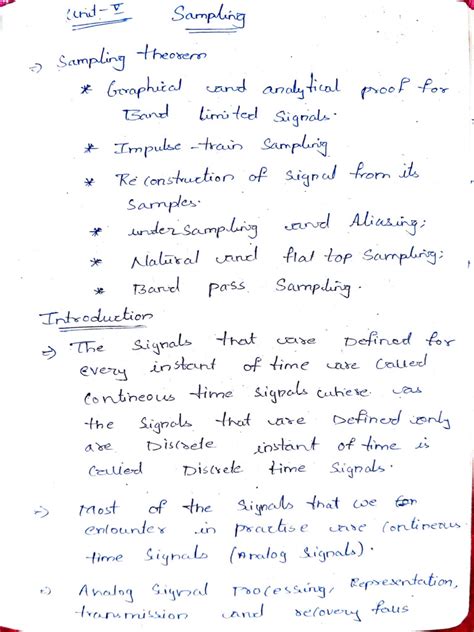 Unit-V Sampling
⇒ Sampling theorem
* Graphical and analytical proof for
Band limited Signals.
* Impulse-train Sampling
* Reconstruction of signal from its
Samples.
* under Sampling and Aliasing;
* Natural and flat top Sampling;
* Band pass Sampling.
Introduction
⇒ The Signals that are Defined for
every instant of time are called
Contineous time Signals where as
the Signals that are Defined only
are Discrete instant of time is
Called Discrete time Signals.
⇒ Most of the Signals that we
encounter in practise are Contineous
time Signals (Analog Signals).
⇒ Analog Signal Processing, Representation,
transmission and recovery falls